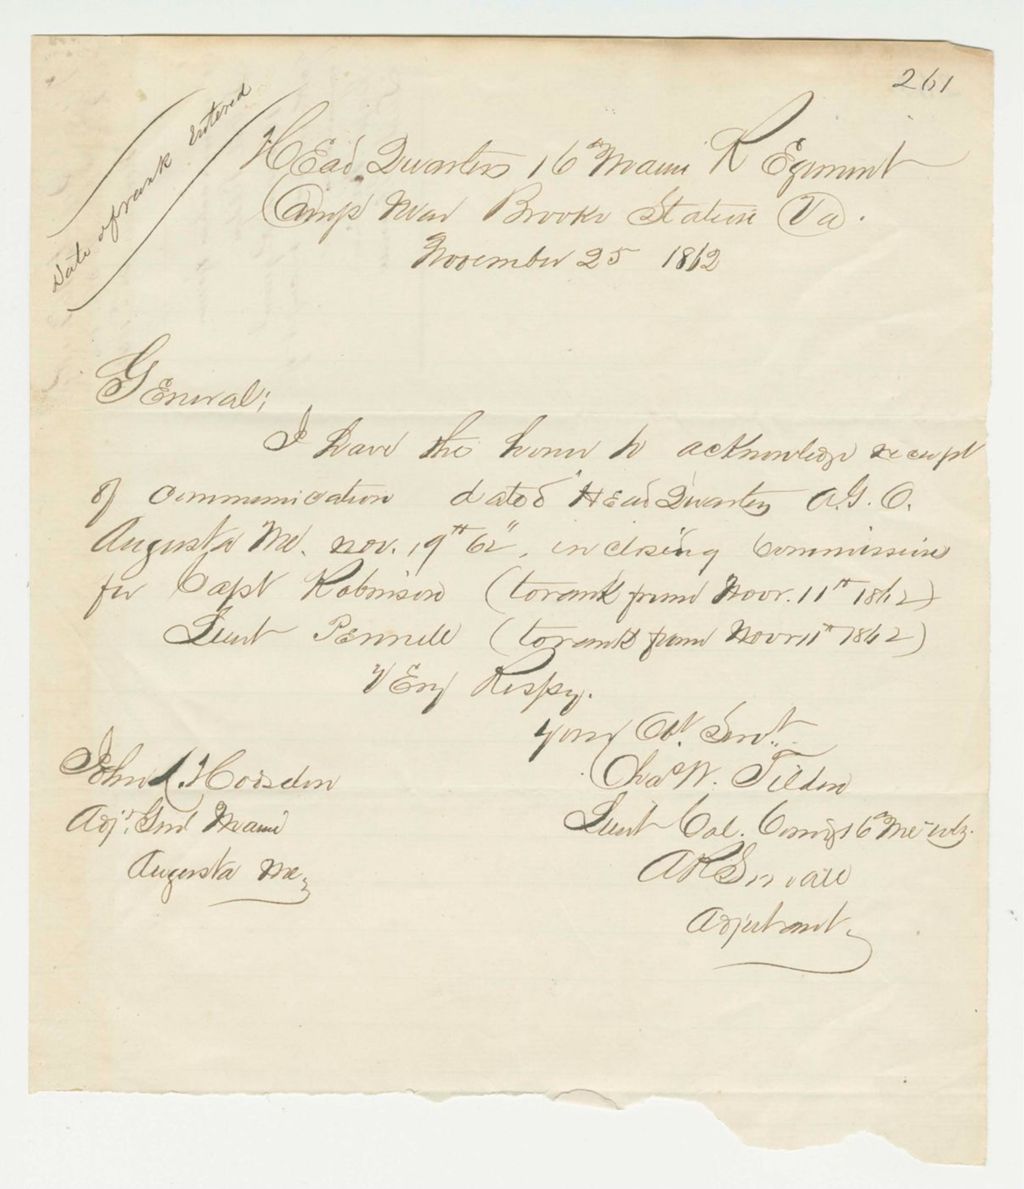 261
Date of rank entered
Head Quarters 16th Maine Regiment
Camp near Brooks Station Va.
November 25 1862
General;
I have the honor to acknowledge receipt
of communication dated Head Quarters A.G.O.
Augusta Me. Nov. 19th 62", inclosing Commissions
for Capt Robinson (to rank from Novr. 11th 1862)
Lieut Pennell (to rank from Novr 11th 1862)
Very Respy.
Your Obt. Servt.
Chas W. Tilden
Lieut Col. Comdg 16th Me Vols.
A R Small
Adjutant
John L. Hodsdon
Adjt. Genl Maine
Augusta Me.